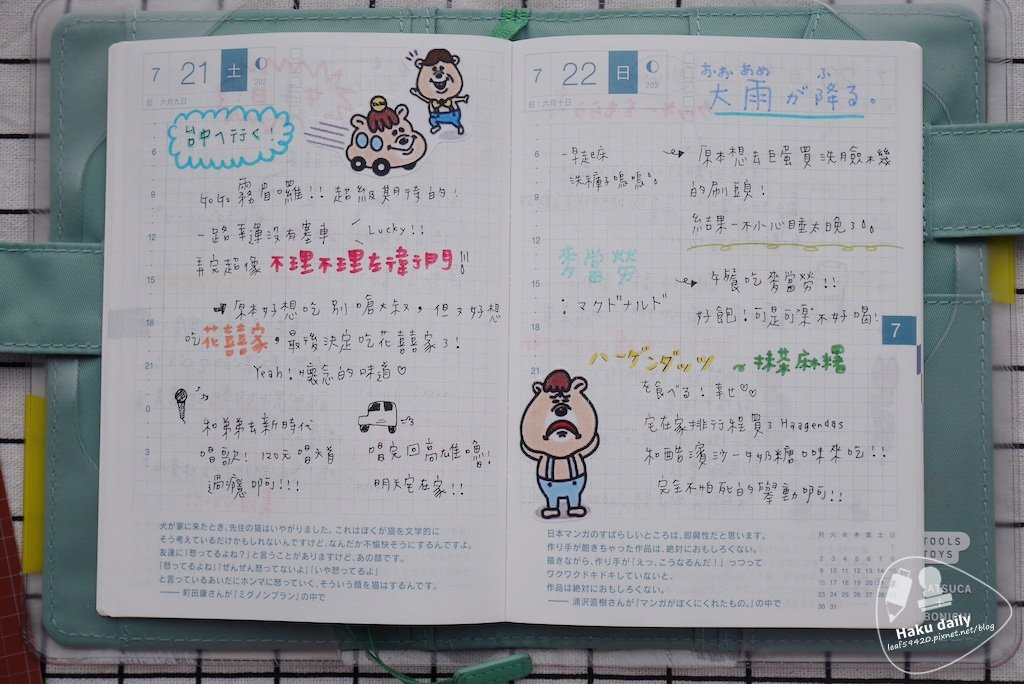 7 21 土
207
旧:六月九日
台中へ行く!
6
9
12
15
18
21
0
3
GoGo 霧眉囉!! 超級期待的!
一路幸運沒有塞車 Lucky!!
弄完超像 不理不理左衛門!!
原本好想吃 別嗆大叔,但又好想
吃花囍家,最後決定吃花囍家了!
Yeah! 懷念的味道♡
和弟弟去新時代
唱歌! 120元唱
過癮啊!!!
唱完回高雄嚕!
明天宅在家!!
犬が家に来たとき、先住の猫はいやがりました。これはぼくが猫を文学的に
そう考えているだけかもしれないんですけど、なんだか不愉快そうにするんですよ。
友達に「怒ってるよね?」と言うことがありますけど、あの顔です。
「怒ってるよね」「ぜんぜん怒ってないよ」「いや怒ってるよ」
と言っているあいだにホンマに怒っていく、そういう顔を猫はするんです。
――町田康さんが『ミグノンプラン』の中で
7 22 日
203
旧:六月十日
おおあめ ふ
大雨が降る。
6
9
12
15
18
21
一早起床
洗褲子嗚嗚
原本想去巨蛋買洗臉機
的刷頭!
結果一不小心睡太晚了
麥當勞
:マクドナルド
午餐吃麥當勞!!
好飽!可是可樂不好喝!
7
ハーゲンダッツ ~抹茶麻糬
を食べる!幸せ♡♡
宅在家排行程買了Haagendas
和酷濱沙一牛奶糖口味來吃!!
完全不怕死的舉動啊!!
日本マンガのすばらしいところは、即興性だと思います。
作り手が飽きちゃった作品は、絶対におもしろくない。
描きながら、作り手が「えっ、こうなるんだ!」っつって
ワクワクドキドキしていないと、
作品は絶対におもしろくない。
――浦沢直樹さんが『マンガがぼくにくれたもの。』の中で
日 月 火 水 木 金 土
1
2 3 4 5 6 7 8
9 10 11 12 13 14 15
16 17 18 19 20 21 22
23 24 25 26 27 28 29
30 31
TOOLS
TOYS
Haku daily
leaf59420.pixnet.net/blog